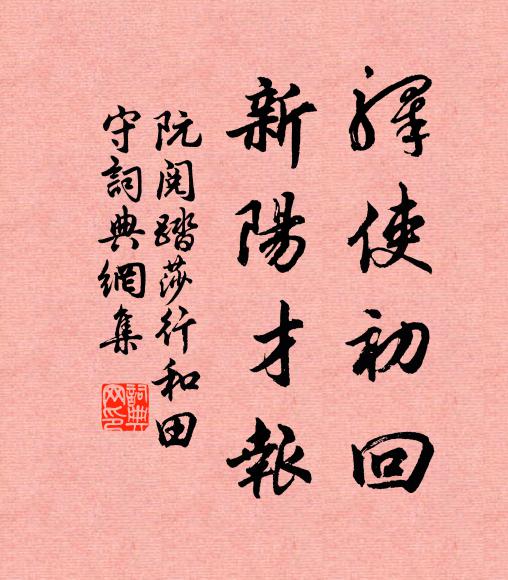 驛使初回
新陽才報
阮閱踏莎行和田
守詞典網集
詞典
网印